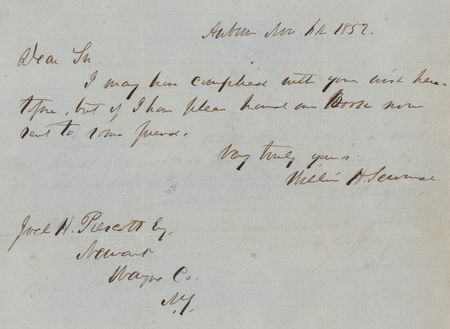 Auburn Nov. 6th 1852.
Dear Sir
I may have complied with your wish here-
tofore, but if I have please hand one now
sent to some friend.
Very truly yours
William H. Seward
Joel H. Prescott Esq.
Newark
Wayne Co.
N.Y.